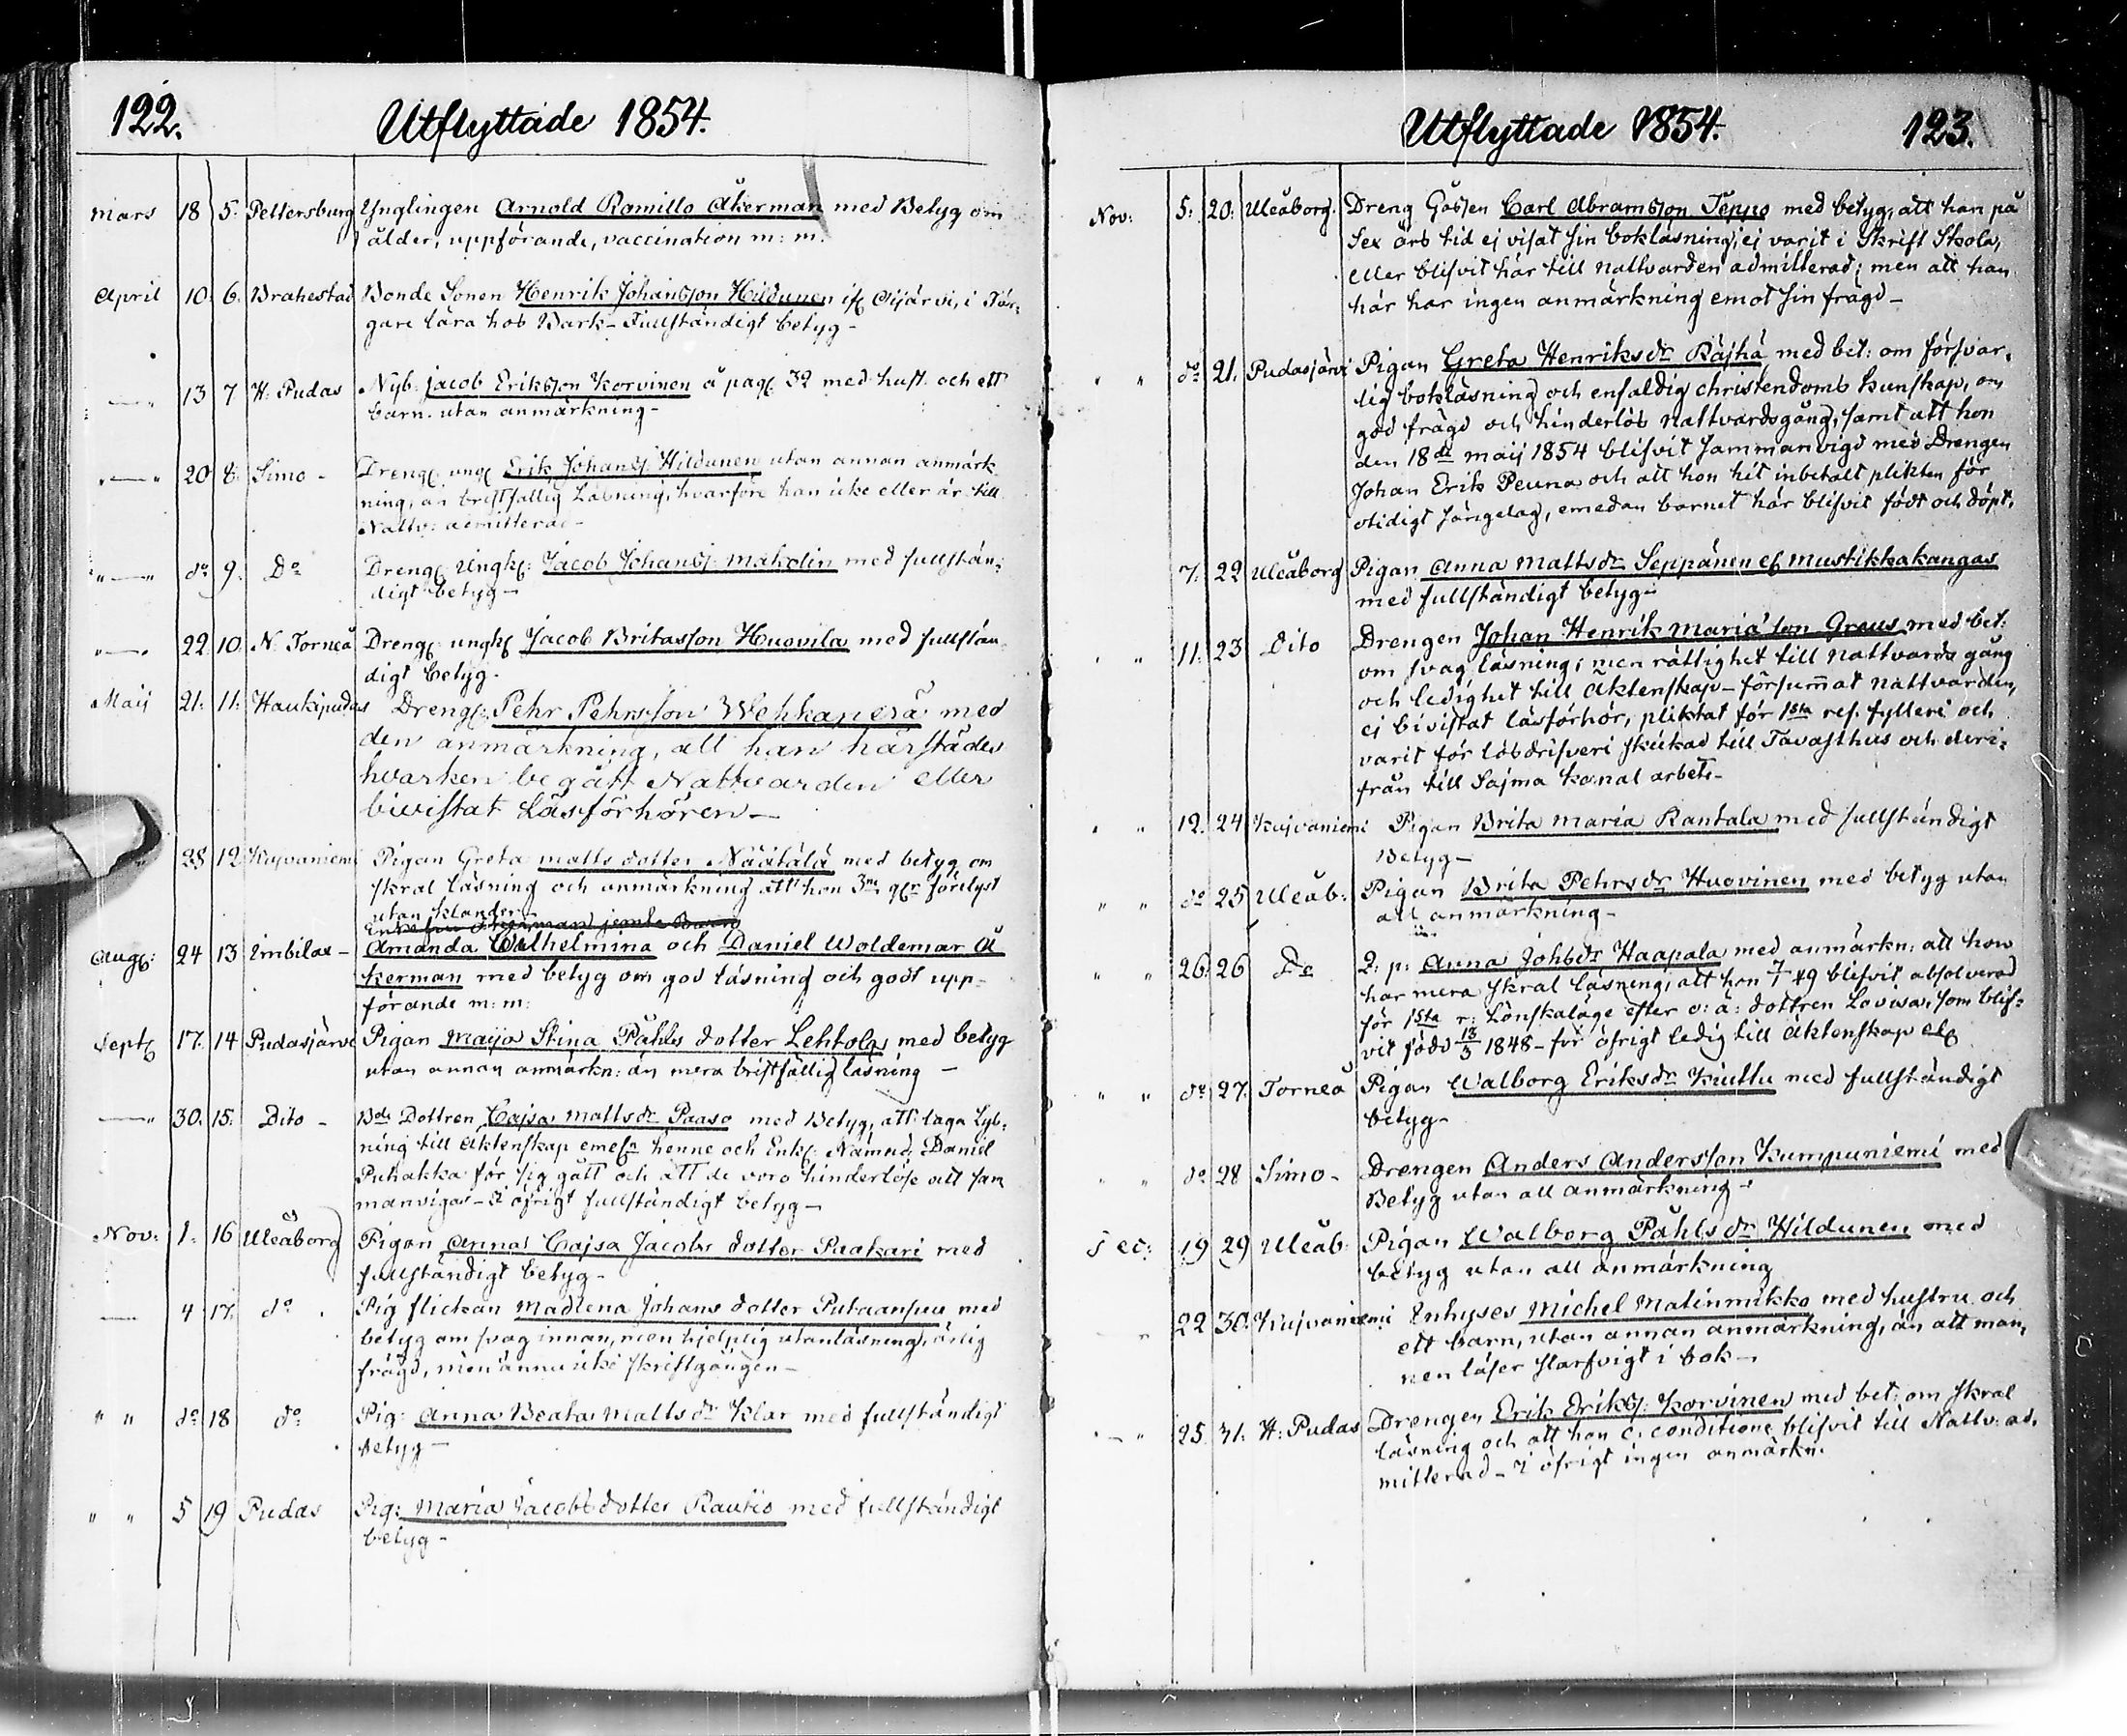 122.
Utflyttade 1854.
Mars 18 5. Pettersburg Ynglingen Arnold Romillo Åkerman med Betyg om
ålder, uppförande, vaccination m: m.
April 10. 6. Brahestad Bonde Sonen Henrik Johansson Hildunen Oijärvi, i Far-
gare lära hos Bark - Fullständigt betyg -
13 7 H. Pudas Nyb: Jacob Eriksson Korvinen å pag: 32 med hust. och ett
barn. utan anmärkning -
20 8. Simo - Dreng: ung: Erik Johans: Hildunen utan annan anmärk
ning, än bristfällig Läsning, hvarföre han icke eller är till
Nattv: admitterad -
do 9. Do Dreng: Ungk: Jacob Johans: Makolin med fullstän-
digt betyg -
22 10. N. Torneå Dreng: ungk: Jacob Britasson Huovila med fullstän
digt betyg.
Maij 21. 11. Haukipudas Dreng: Pehr Pehrsson Wehkaperä med
den anmärkning, att han härstädes
hvarken begått Nattvarden eller
bivistat Läsförhören -
28 12 Kuivaniemi Pigan Greta Matts dotter Näätälä med betyg om
skral läsning och anmärkning att hon 3ne ggr förelyst
utan klander -
Amanda Wilhelmina och Daniel Woldemar Å
Aug: 24 13 Imbilax - kerman med betyg om god läsning och godt upp-
förande m: m:
Sept: 17. 14 Pudasjärvi Pigan Maija Stina Påhls dotter Lehtola med betyg
utan annan anmärkn: än mera bristfällig läsning -
30. 15. Dito - Bde Dottren Cajsa Mattsdr Paaso med Betyg, att taga Lys-
ning till Äktenskap emell: henne och Enkl: Nämnd: Daniel
Puhakka för sig gått och att de voro hinderlöse att sam
manvigas - I öfrigt fullständigt betyg -
Nov: 1. 16 Uleåborg Pigan Anna Cajsa Jacobs dotter Paakari med
fullständigt betyg -
4 17. do Pig flickan Madlena Johans dotter Putaanpuu med
betyg om svag innan, men hjelplig utanläsning, ärlig
frägd, men ännu icke skriftgången -
" " do 18 do Pig: Anna Beata Mattsdr Klar med fullständigt
betyg -
" " 5 19 Pudas Pig: Maria Jacobsdotter Rautio med fullständigt
betyg -
Utflyttade 1854.
123.
Nov: 5. 20. Uleåborg. Dreng Gåssen Carl Abramsson Teppo med betyg, att han på
Sex års tid ej visat sin bokläsning, ej varit i Skrift Skola,
eller blifvit här till nattvarden admitterad; men att han
här har ingen anmärkning emot sin frägd -
" " do 21. Pudasjärvi Pigan Greta Henriksdr Räjhä med bet: om försvar-
lig bokläsning och enfaldig christendoms kunskap, om
god frägd och hinderlös nattvardsgång, samt att hon
den 18de Maij 1854 blifvit sammanvigd med Drengen
Johan Erik Peuna och att hon hit inbetalt plikten för
otidigt sängelag, emedan barnet här blifvit födt och döpt.
7. 22 Uleåborg Pigan Anna Mattsdr Seppänen el: Mustikkakangas
med fullständigt betyg -
" " 11. 23 Dito Drengen Johan Henrik Maria'son Graus med bet:
om svag läsning; men rättighet till nattvards gång
och ledighet till Äktenskap - försummat nattvarden,
ej bivistat läsförhör, pliktat för 1sta res. fylleri och
varit för lösdrifveri skickad till Tavasthus och deri-
från till Sajma kanal arbete -
" " 12. 24 Kuivaniemi Pigan Brita Maria Rantala med fullständigt
Betyg -
" " do 25 Uleåb: Pigan Brita Pehrsdr Huovinen med betyg utan
all anmärkning -
" " 26. 26 Do Q: p: Anna Johsdr Haapala med anmärkn: att hon
har mera skral läsning, att hon 7/7 49 blifvit absolverad
för 1sta r: Lönskaläge efter o: ä: dottren Lovisa, som blif-
vit född 13/3 1848 - för öfrigt ledig till Äktenskap etc
" " do 27. Torneå Pigan Walborg Eriksdr Kiuttu med fullständigt
betyg -
" " do 28 Simo - Drengen Anders Andersson Kumpuniemi med
Betyg utan all anmärkning -
Dec: 19 29 Uleåb: Pigan Walborg Påhlsdr Hildunen med
betyg utan all anmärkning
22 30. Kuivaniemi Inhyses Michel Matinmikko med hustru och
ett barn, utan annan anmärkning, än att man-
nen läser slarfvigt i bok -
25. 31. H: Pudas Drengen Erik Eriks: Korvinen med bet: om skral
läsning och att han c: conditione blifvit till Nattv: ad-
mitterad - I öfrigt ingen anmärkn: